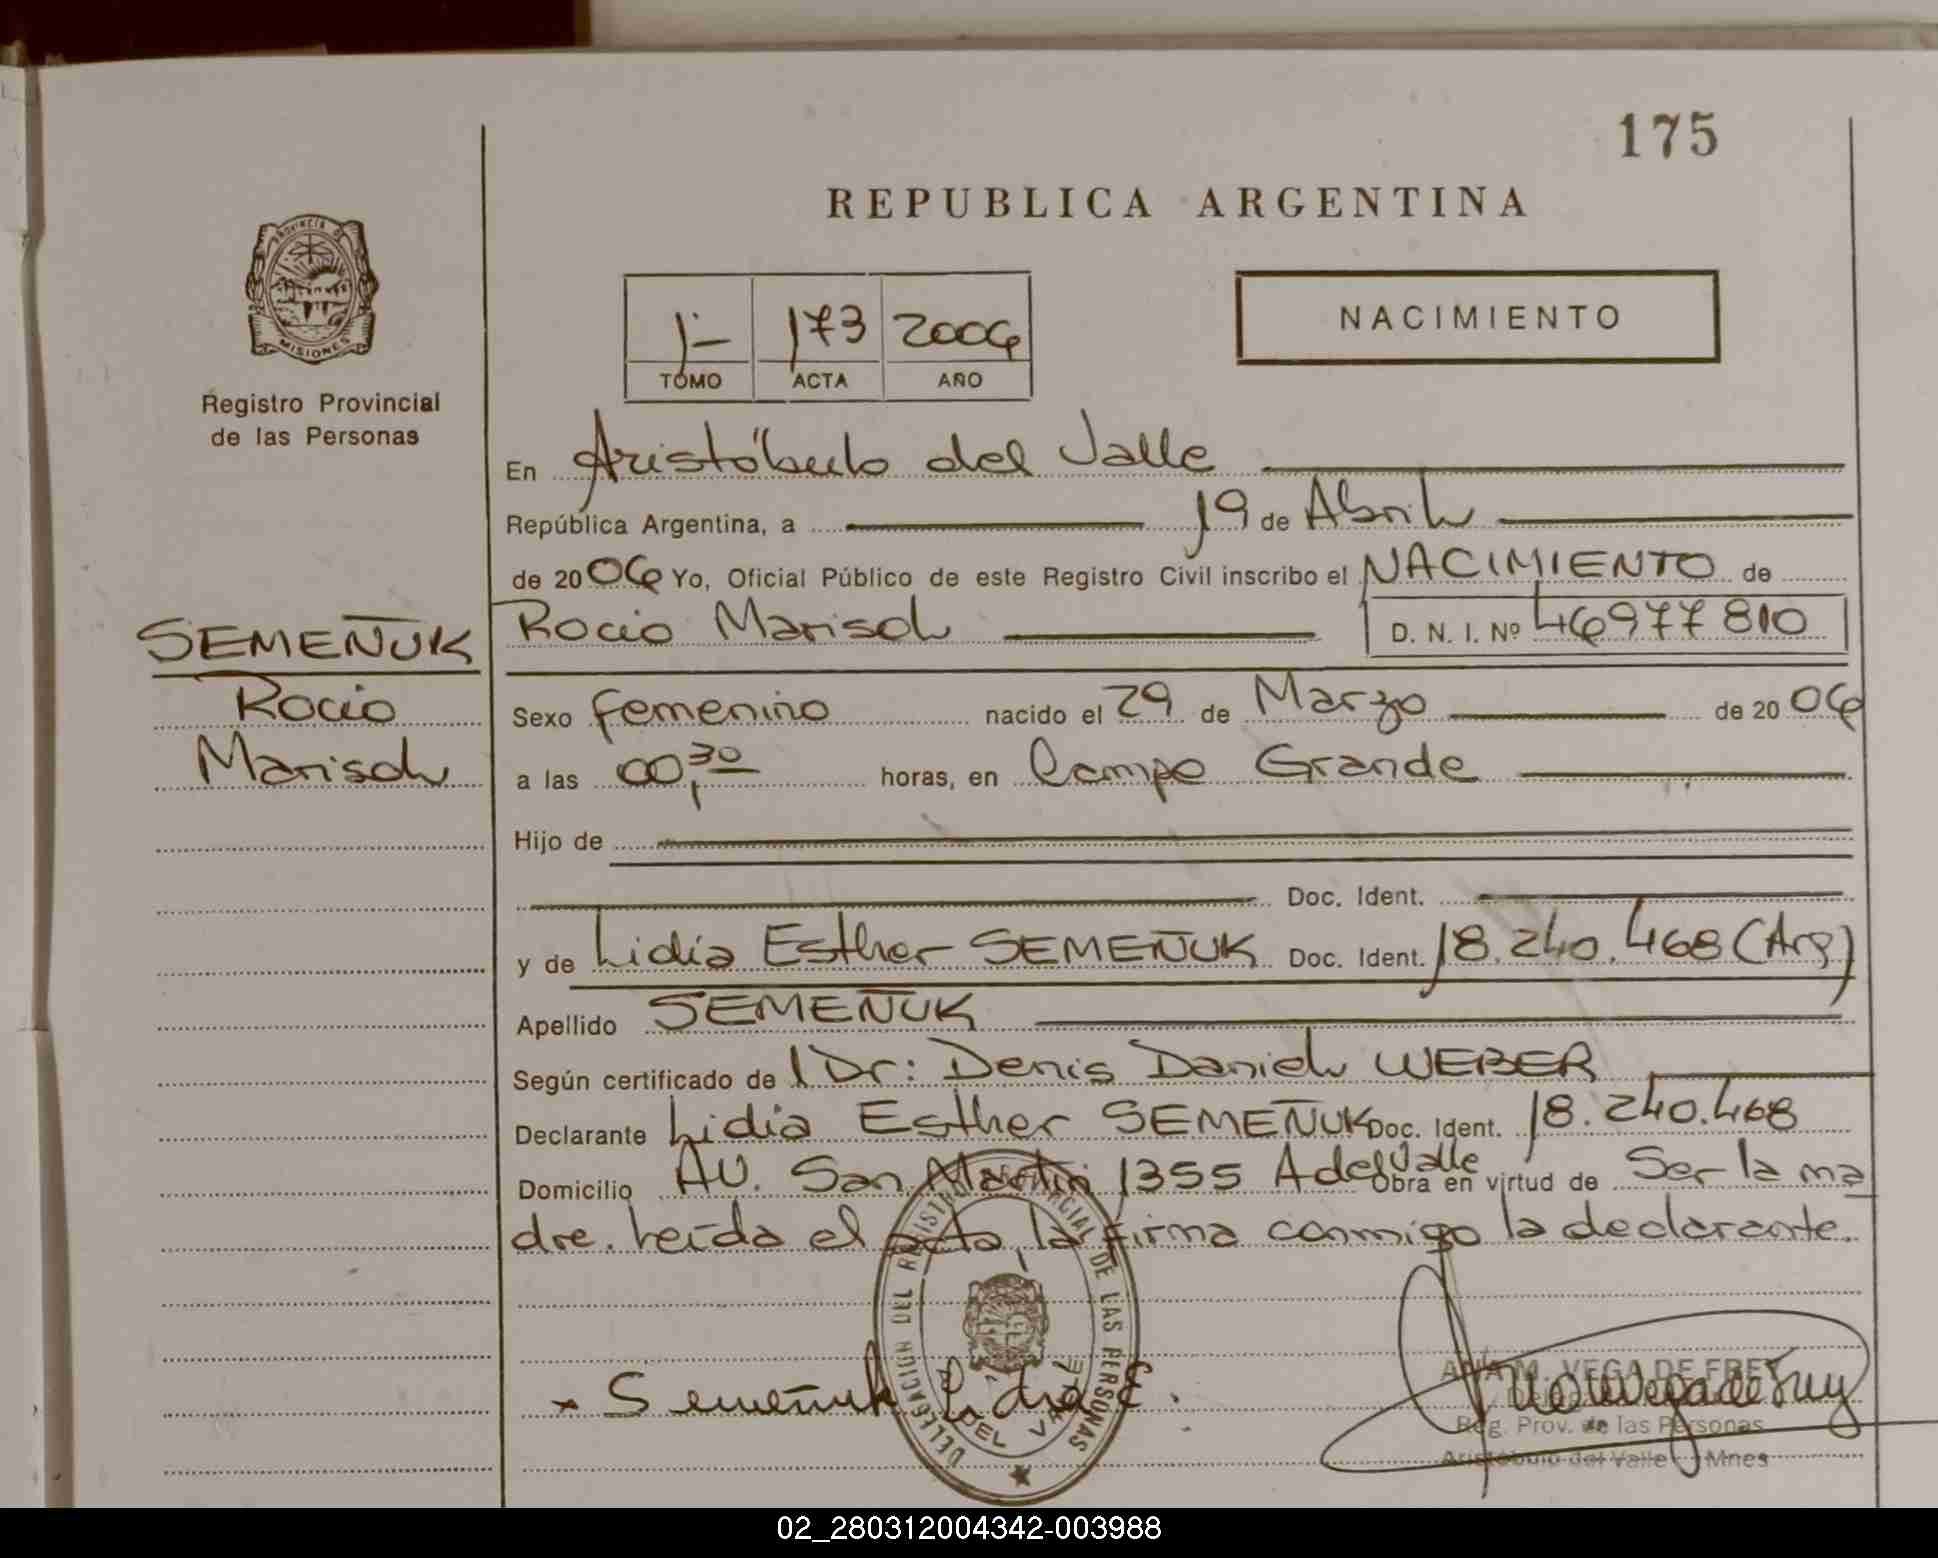 175
REPUBLICA ARGENTINA
PROVINCIA DE
MISIONES
Registro Provincial
de las Personas
1- 173 2006
TOMO ACTA AÑO
NACIMIENTO
En Aristóbulo del Valle
República Argentina, a 19 de Abril
de 2006 Yo, Oficial Público de este Registro Civil inscribo el NACIMIENTO de
SEMEÑUK
Rocio
Marisol
Rocio Marisol D. N. I. Nº 46977810
Sexo femenino nacido el 29 de Marzo de 2006
a las 00,30 horas, en Campo Grande
Hijo de
Doc. Ident.
y de Lidia Esther SEMEÑUK Doc. Ident. 18.240.468 (Arg)
Apellido SEMEÑUK
Según certificado de Dr: Denis Daniel WEBER
Declarante Lidia Esther SEMEÑUK Doc. Ident. 18.240.468
Domicilio AV. San Martin 1355 A del Valle Obra en virtud de Ser la ma
dre. Leída el acta, la firma conmigo la declarante.
DELEGACION DEL REGISTRO PROVINCIAL DE LAS PERSONAS
DEL VALLE
x Semeñuk Lidia E.
ANA M. VEGA DE FREY
Reg. Prov. de las Personas
Aristóbulo del Valle - Mnes
02_280312004342-003988